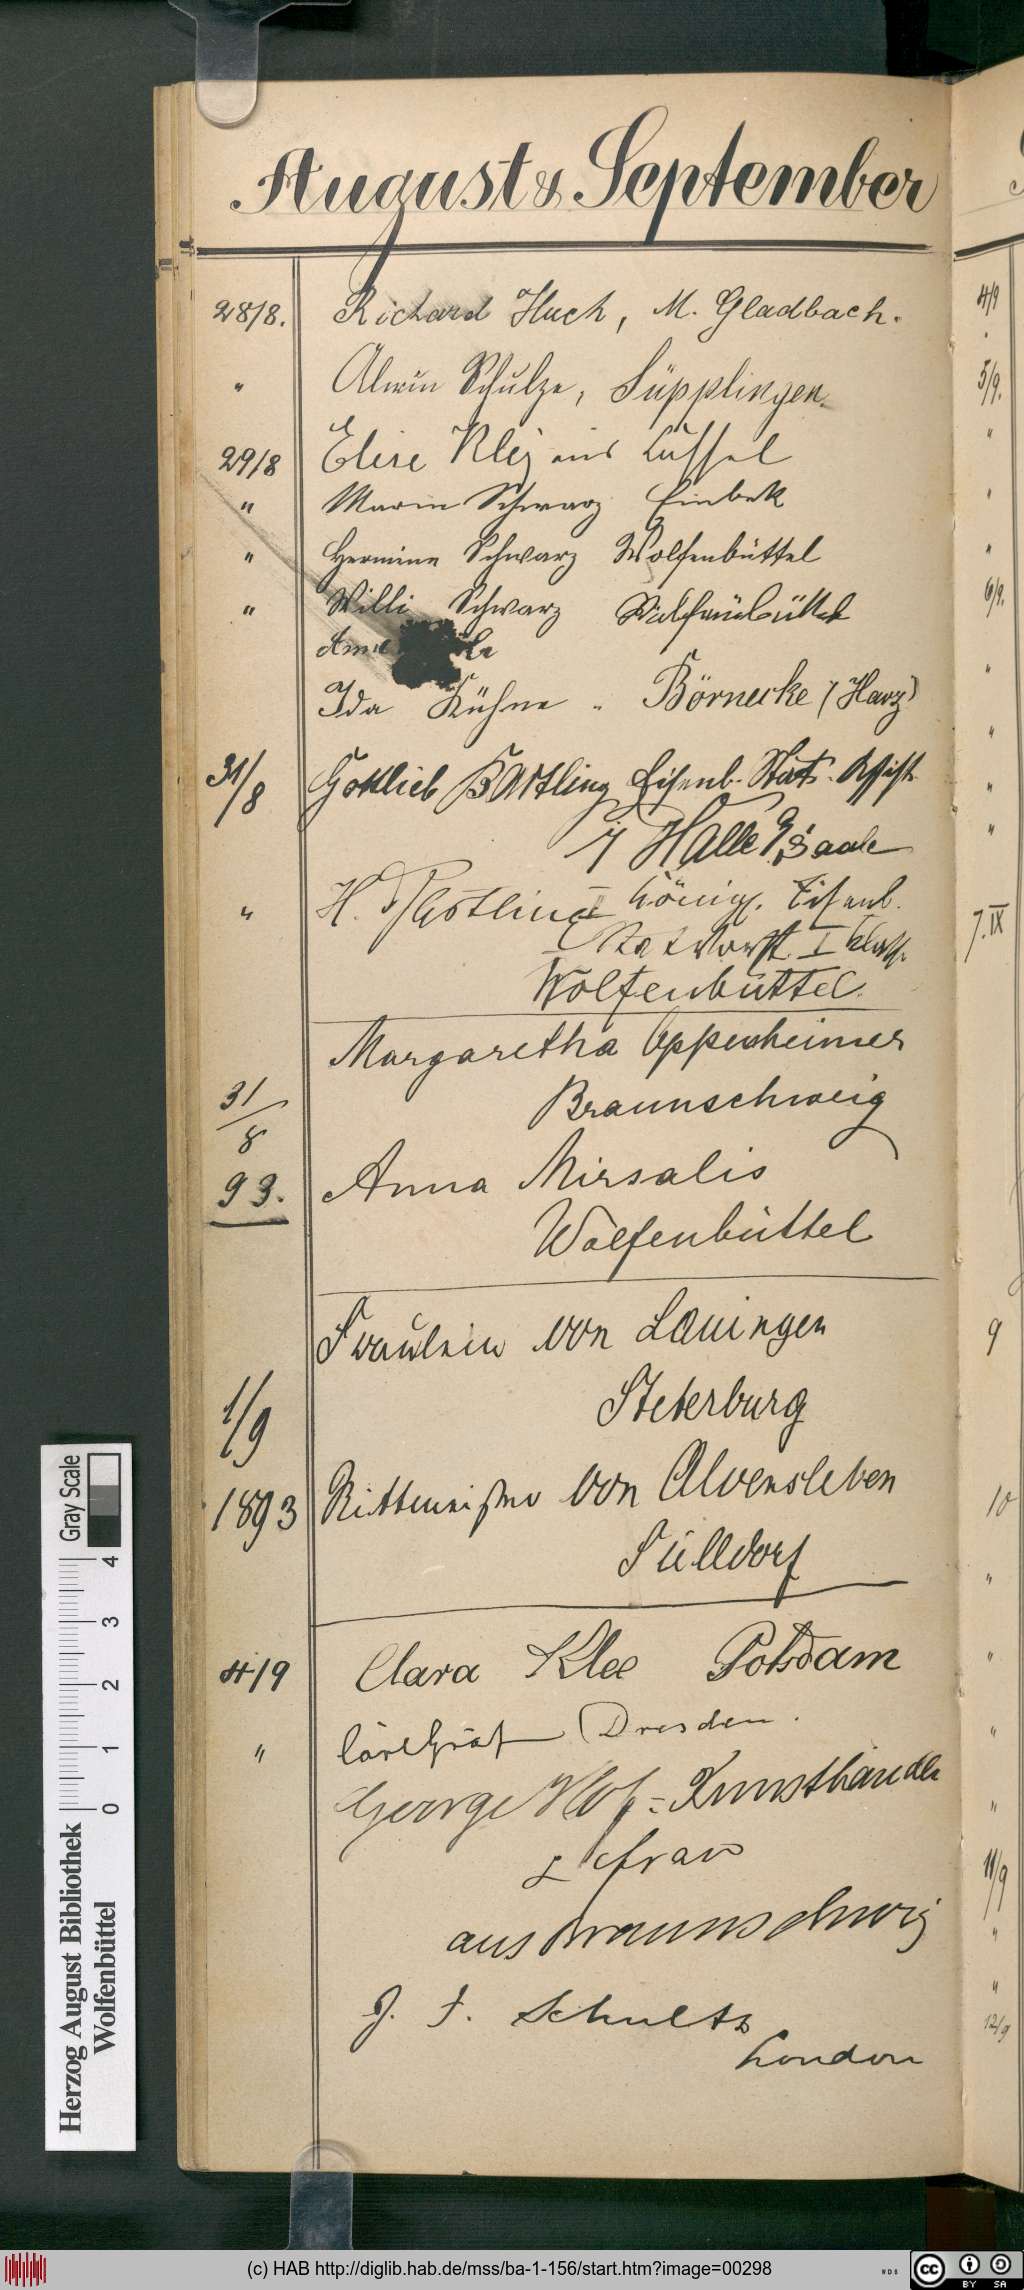 August & September
28/8. Richard Huch, M. Gladbach.
" Alwin Schulze, Süpplingen.
29/8 Elise Kley aus
" Schwarz Einbek
" Hermine Schwarz Wolfenbüttel
" Willi Schwarz Wolfenbüttel
Ida Kühne " Börnecke (Harz)
31/8 Gottlieb Bartling Eisenb. Stat. Assist
Halle a/Saale
" H. Königl. Eisenb.
I Klasse
Wolfenbüttel.
Margaretha Oppenheimer
31/8 Braunschweig
93. Anna Mirsalis
Wolfenbüttel
Fräulein von Lauingen
1/9 Steterburg
1893 Rittmeister von Alvensleben
Sülldorf
4/9 Clara Klee Potsdam
" Carl Gräf Dresden.
George Hof-Kunsthändler
& Frau
aus Braunschweig
J. F. Schultz
London
4/9
5/9.
"
"
"
6/9.
"
"
"
"
7.IX
9
10
"
"
"
"
11/9
"
"
12/9
Gray Scale
4
3
2
1
0
Herzog August Bibliothek
Wolfenbüttel
(c) HAB http://diglib.hab.de/mss/ba-1-156/start.htm?image=00298
WDB
cc BY SA